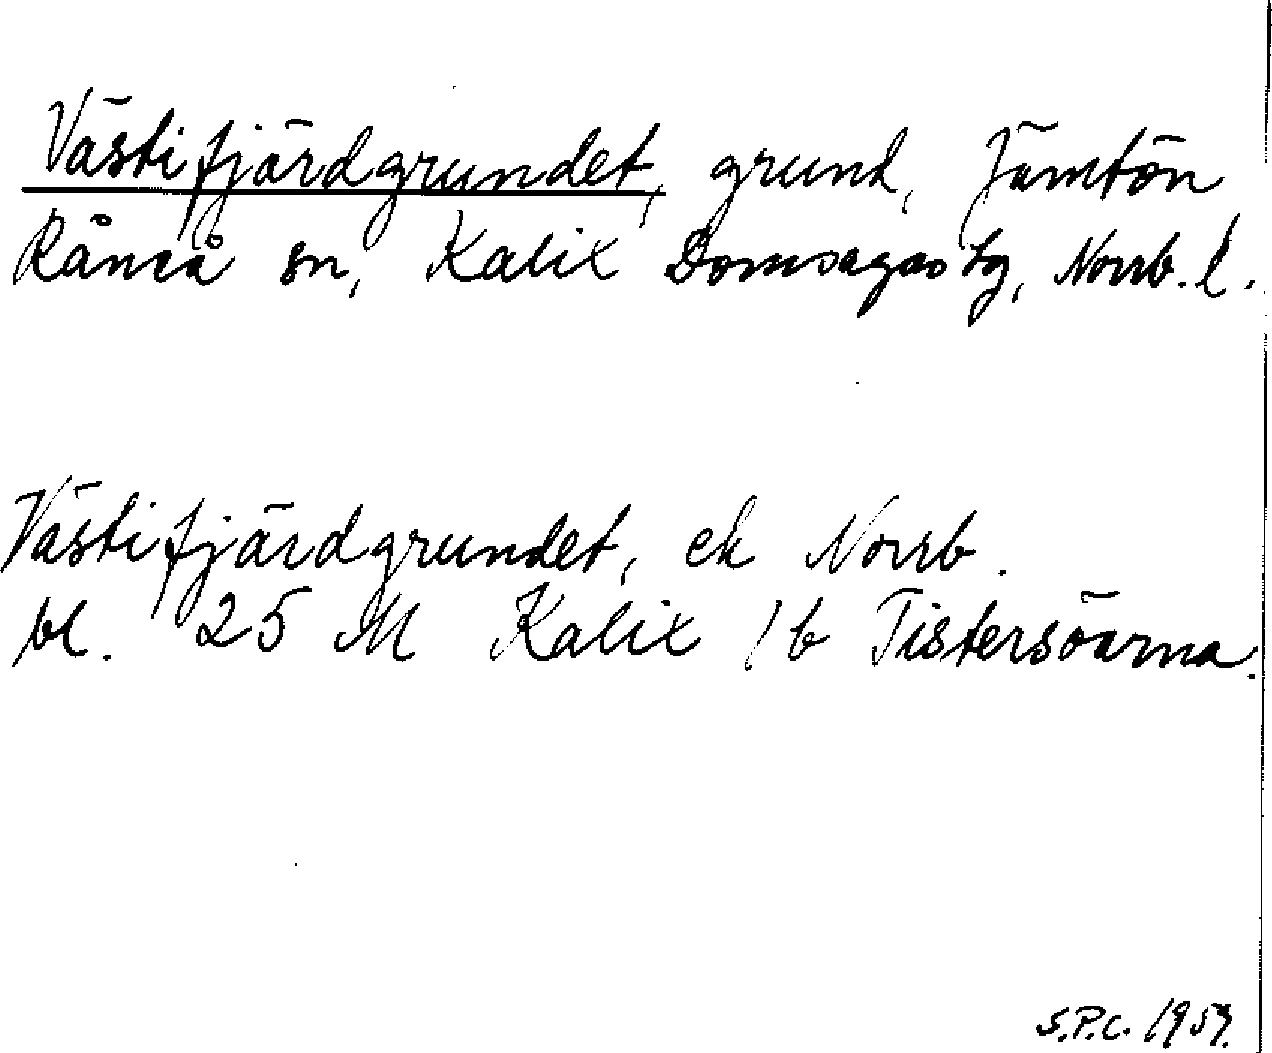 Västifjärdgrundet, grund, Jämtön
Råneå sn, Kalix Domsagas tg, Norrb. l.
Västifjärdgrundet, ek Norrb.
bl. 25 M Kalix 1b Tistersöarna.
S.P.C. 1959.